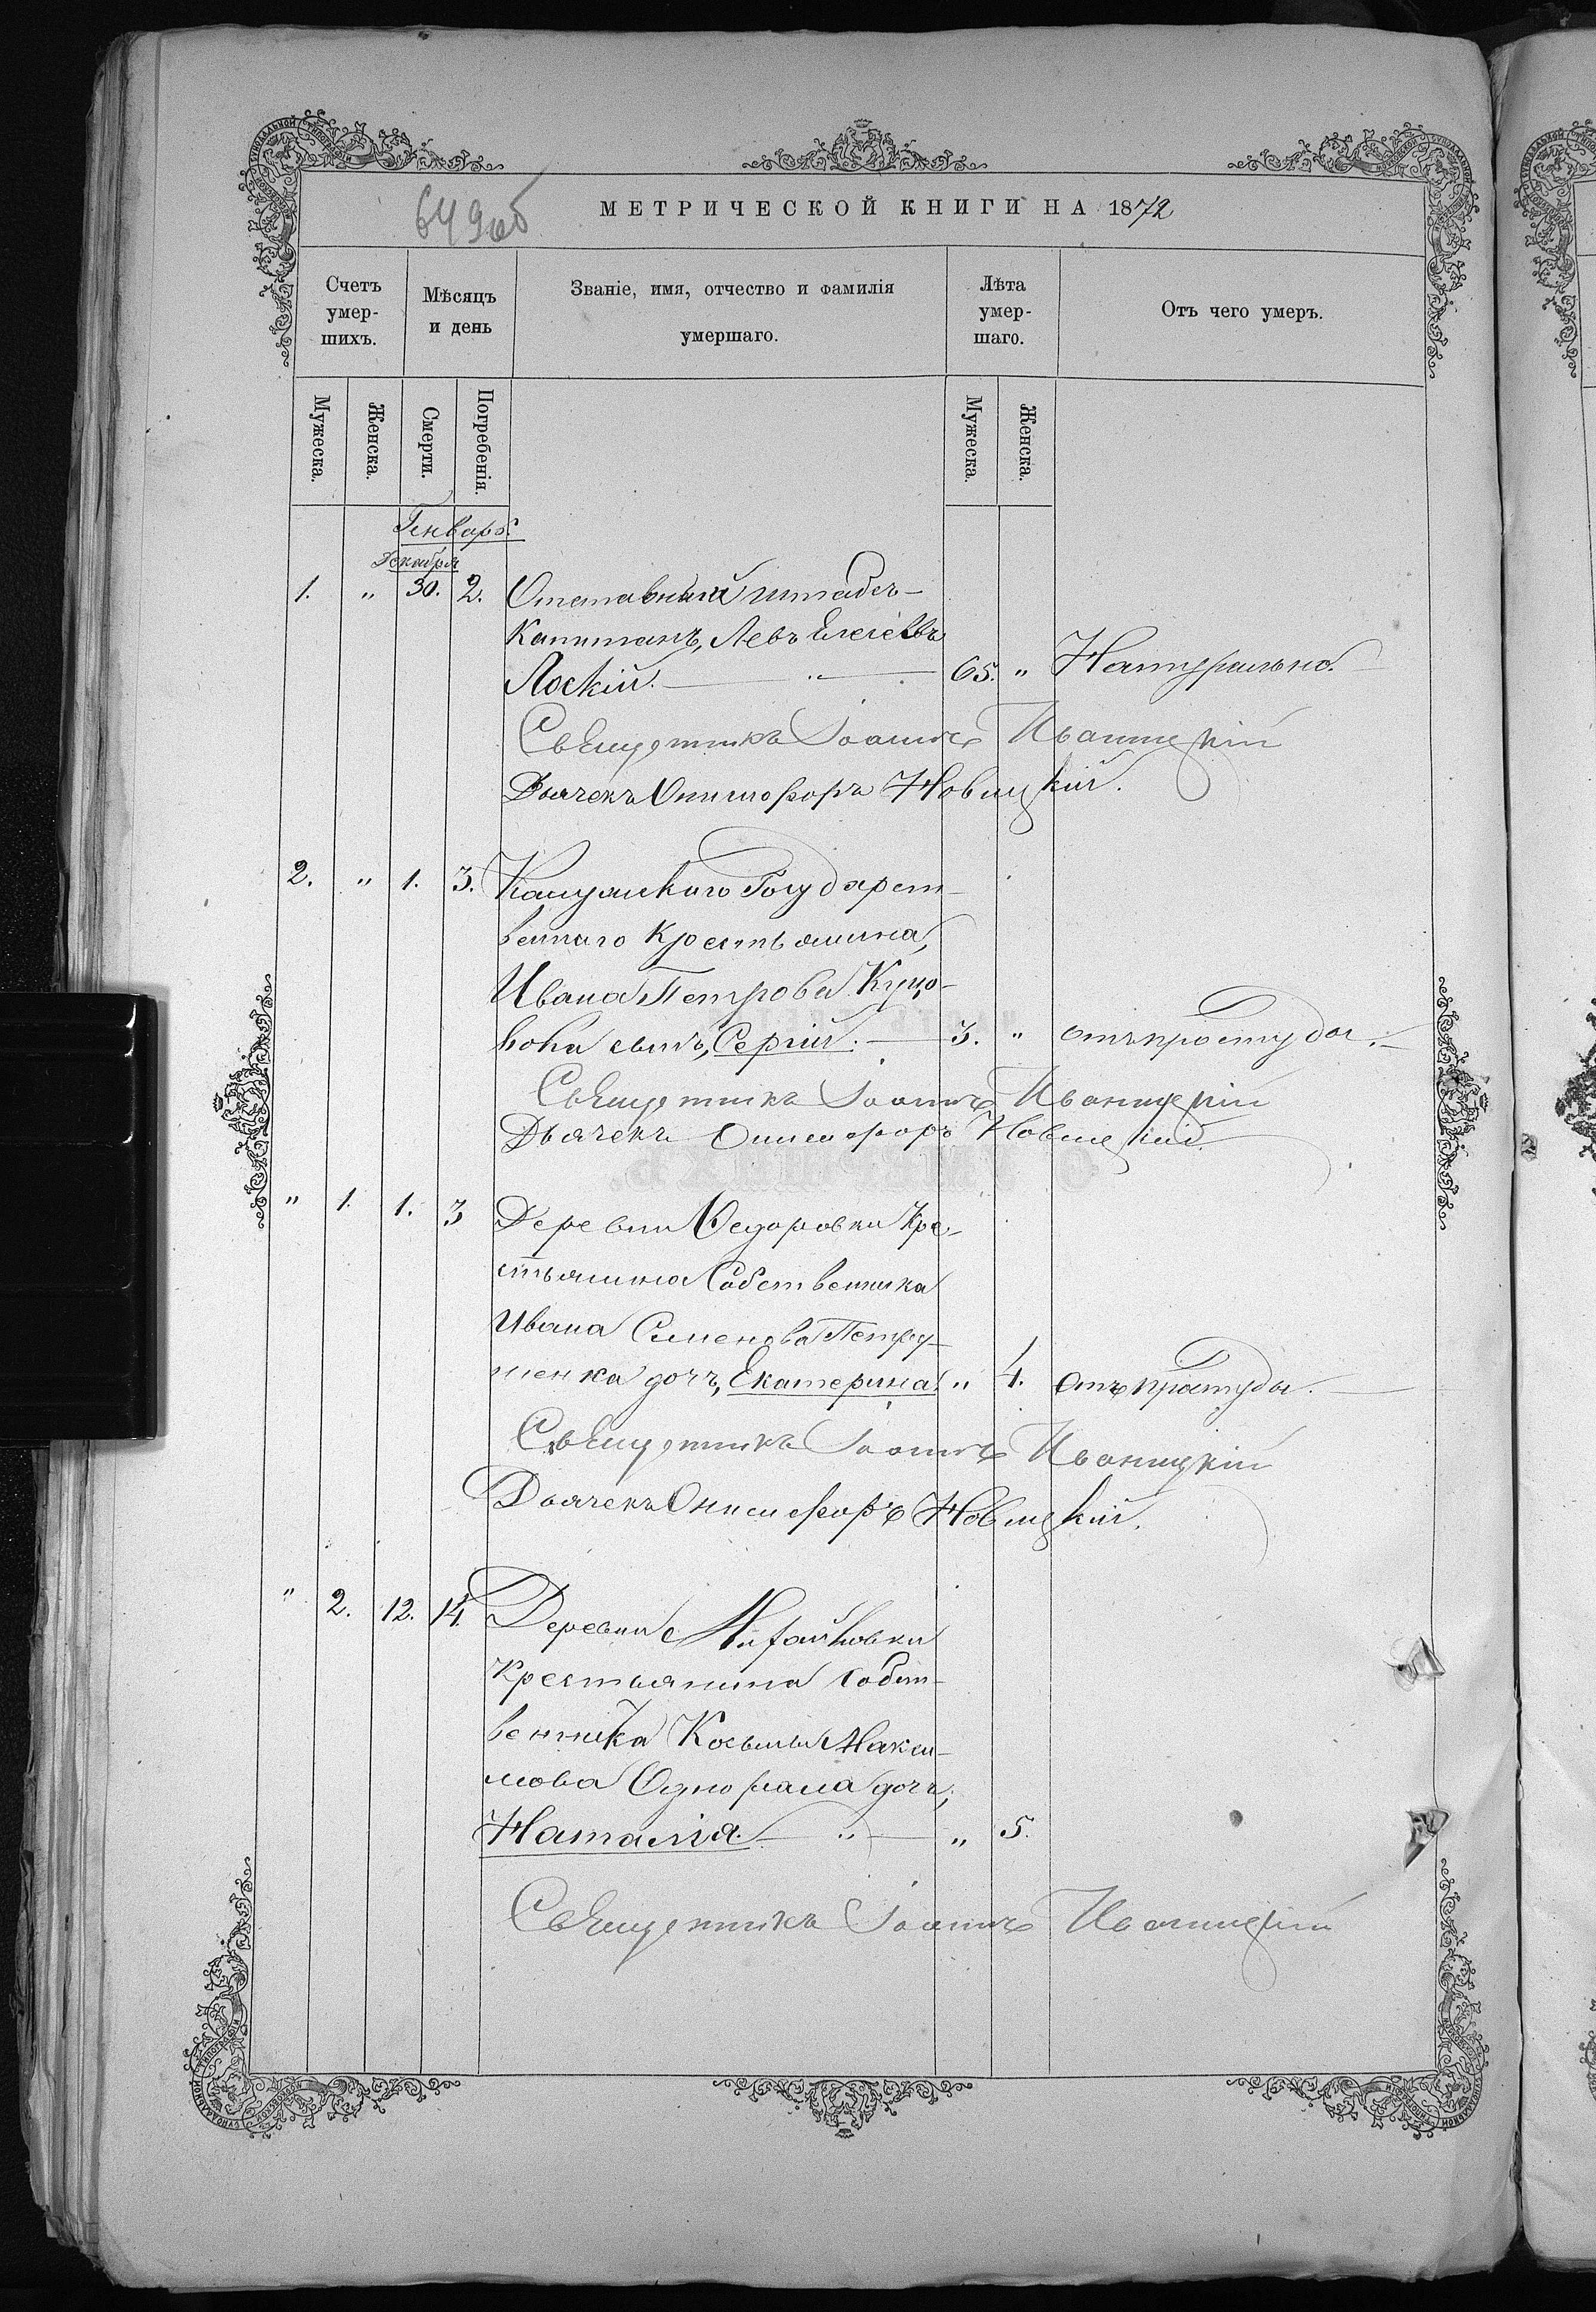 649об
МЕТРИЧЕСКОЙ КНИГИ НА 1872
Счетъ умер- шихъ.
Мѣсяцъ и день
Званіе, имя, отчество и фамилія умершаго.
Лѣта умер- шаго.
Отъ чего умеръ.
Мужеска. Женска. Смерти. Погребенія. Мужеска. Женска.
Генварь.
Декабря
1. " 30. 2. Отставный штабсъ-
Капитанъ, Левъ
Лоскій. 65. " Натурально.
Священникъ Іоаннъ Иваницкій
Дьячекъ Онисифоръ Новицкій.
2. " 1. 3. Государст-
веннаго Крестьянина,
Ивана Петрова Куцо-
вока сынъ, Сергій. 3. " отъ простуды.
Священникъ Іоаннъ Иваницкій
Дьячекъ Онисифоръ Новицкій
" 1. 1. 3 Деревни Федоровки Кре-
стьянина Собственника
Ивана Семенова Петру-
шенка дочъ, Екатерина. " 4. отъ простуды.
Священникъ Іоаннъ Иваницкій
Дьячекъ Онисифоръ Новицкій.
" 2. 12. 14. Деревни Михайловки
Крестьянина Собст-
венника Косьмы Макси-
мова дочъ,
Наталія. " 5.
Священникъ Іоаннъ Иваницкій